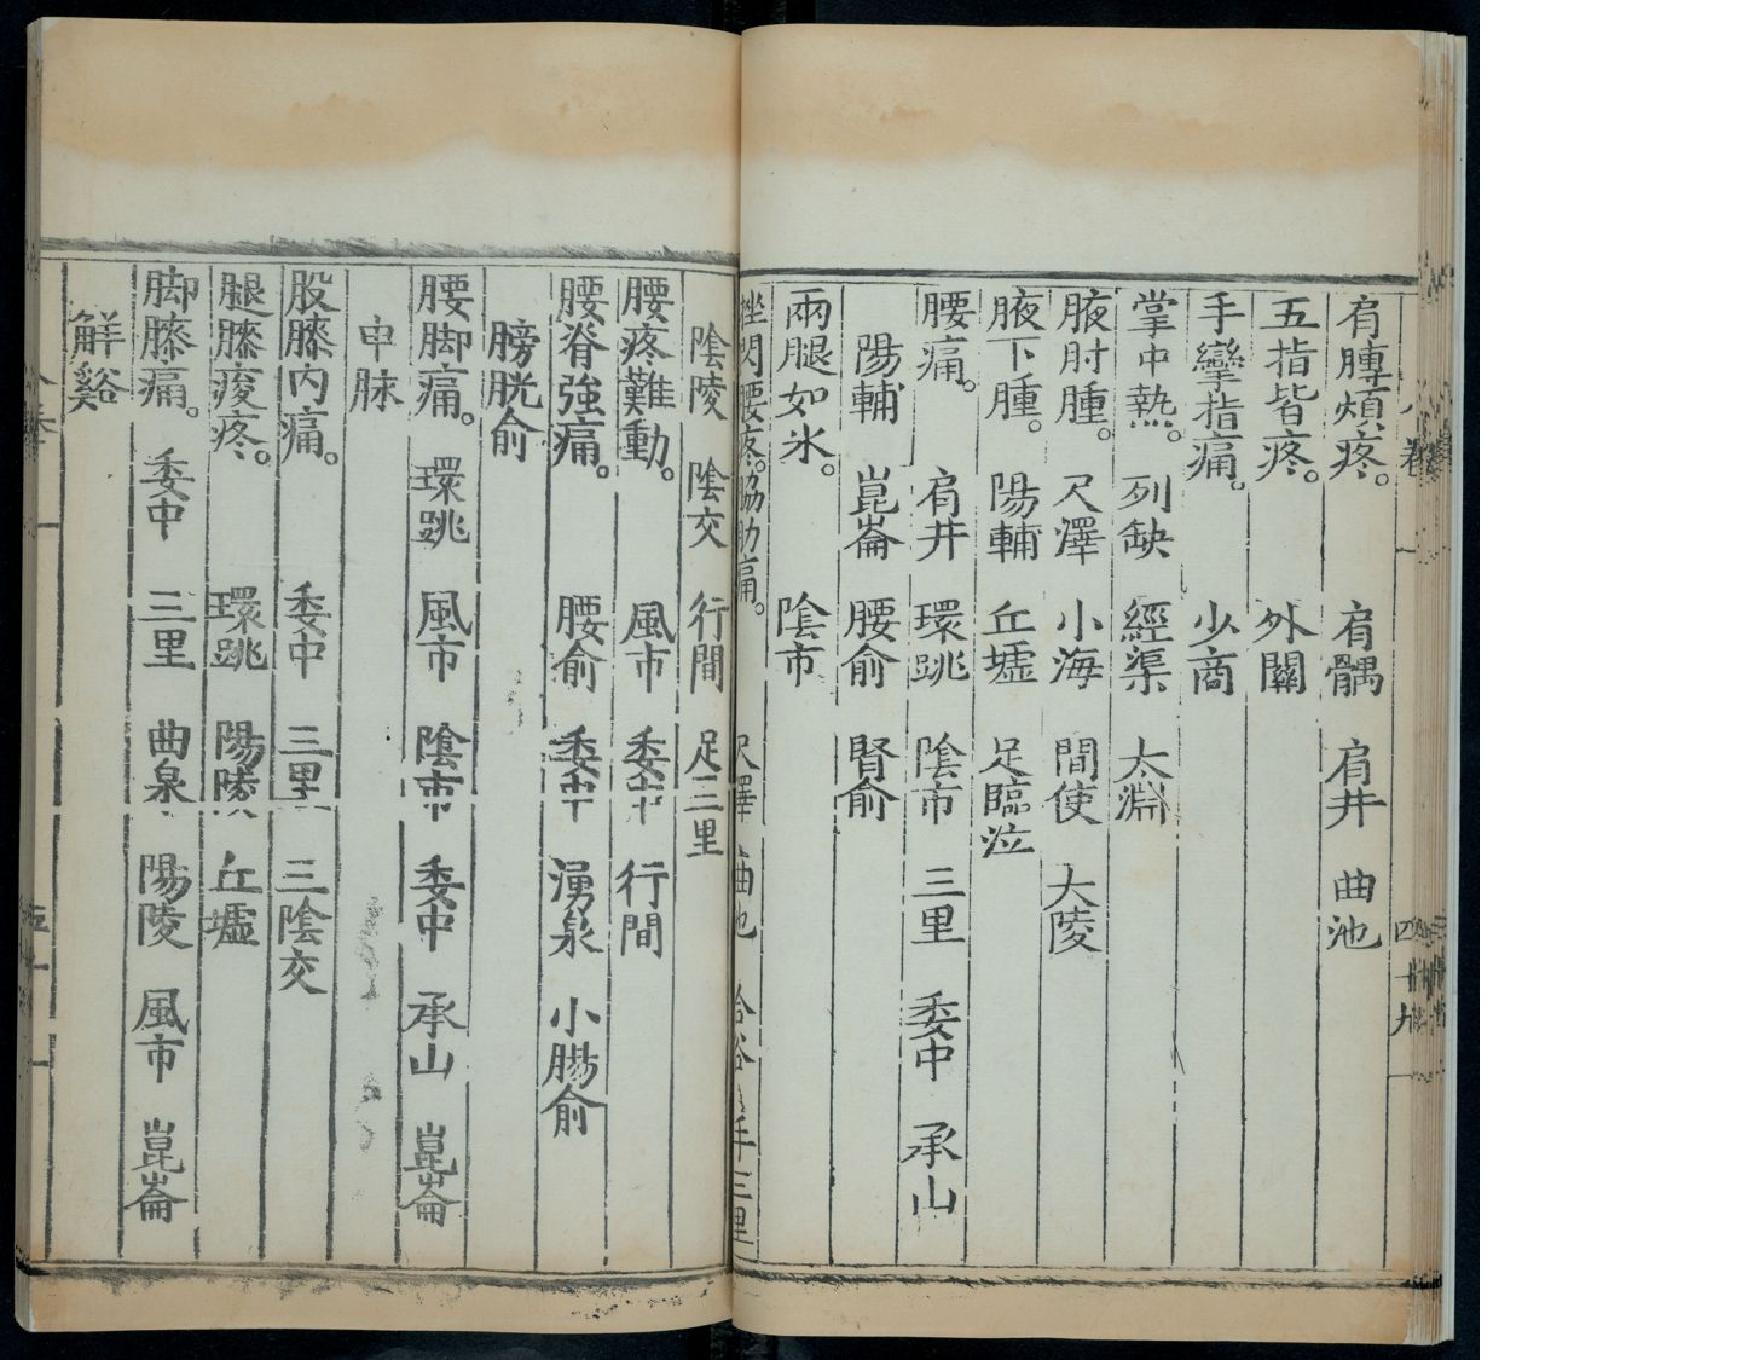 肩膊煩疼。 肩髃 肩井 曲池
五指皆疼。 外關
手攣指痛。 少商
掌中熱。 列缺 經渠 太淵
腋肘腫。 尺澤 小海 間使 大陵
腋下腫。 陽輔 丘墟 足臨泣
腰痛。 肩井 環跳 陰市 三里 委中 承山
陽輔 崑崙 腰俞 腎俞
兩腿如氷。 陰市
挫閃腰疼。脇肋痛。 尺澤 曲池 合谷 手三里
陰陵 陰交 行間 足三里
腰疼難動。 風市 委中 行間
腰脊強痛。 腰俞 委中 湧泉 小腸俞
膀胱俞
腰脚痛。 環跳 風市 陰市 委中 承山 崑崙
申脉
股膝内痛。 委中 三里 三陰交
腿膝痠疼。 環跳 陽陵 丘墟
脚膝痛。 委中 三里 曲泉 陽陵 風市 崑崙
解谿